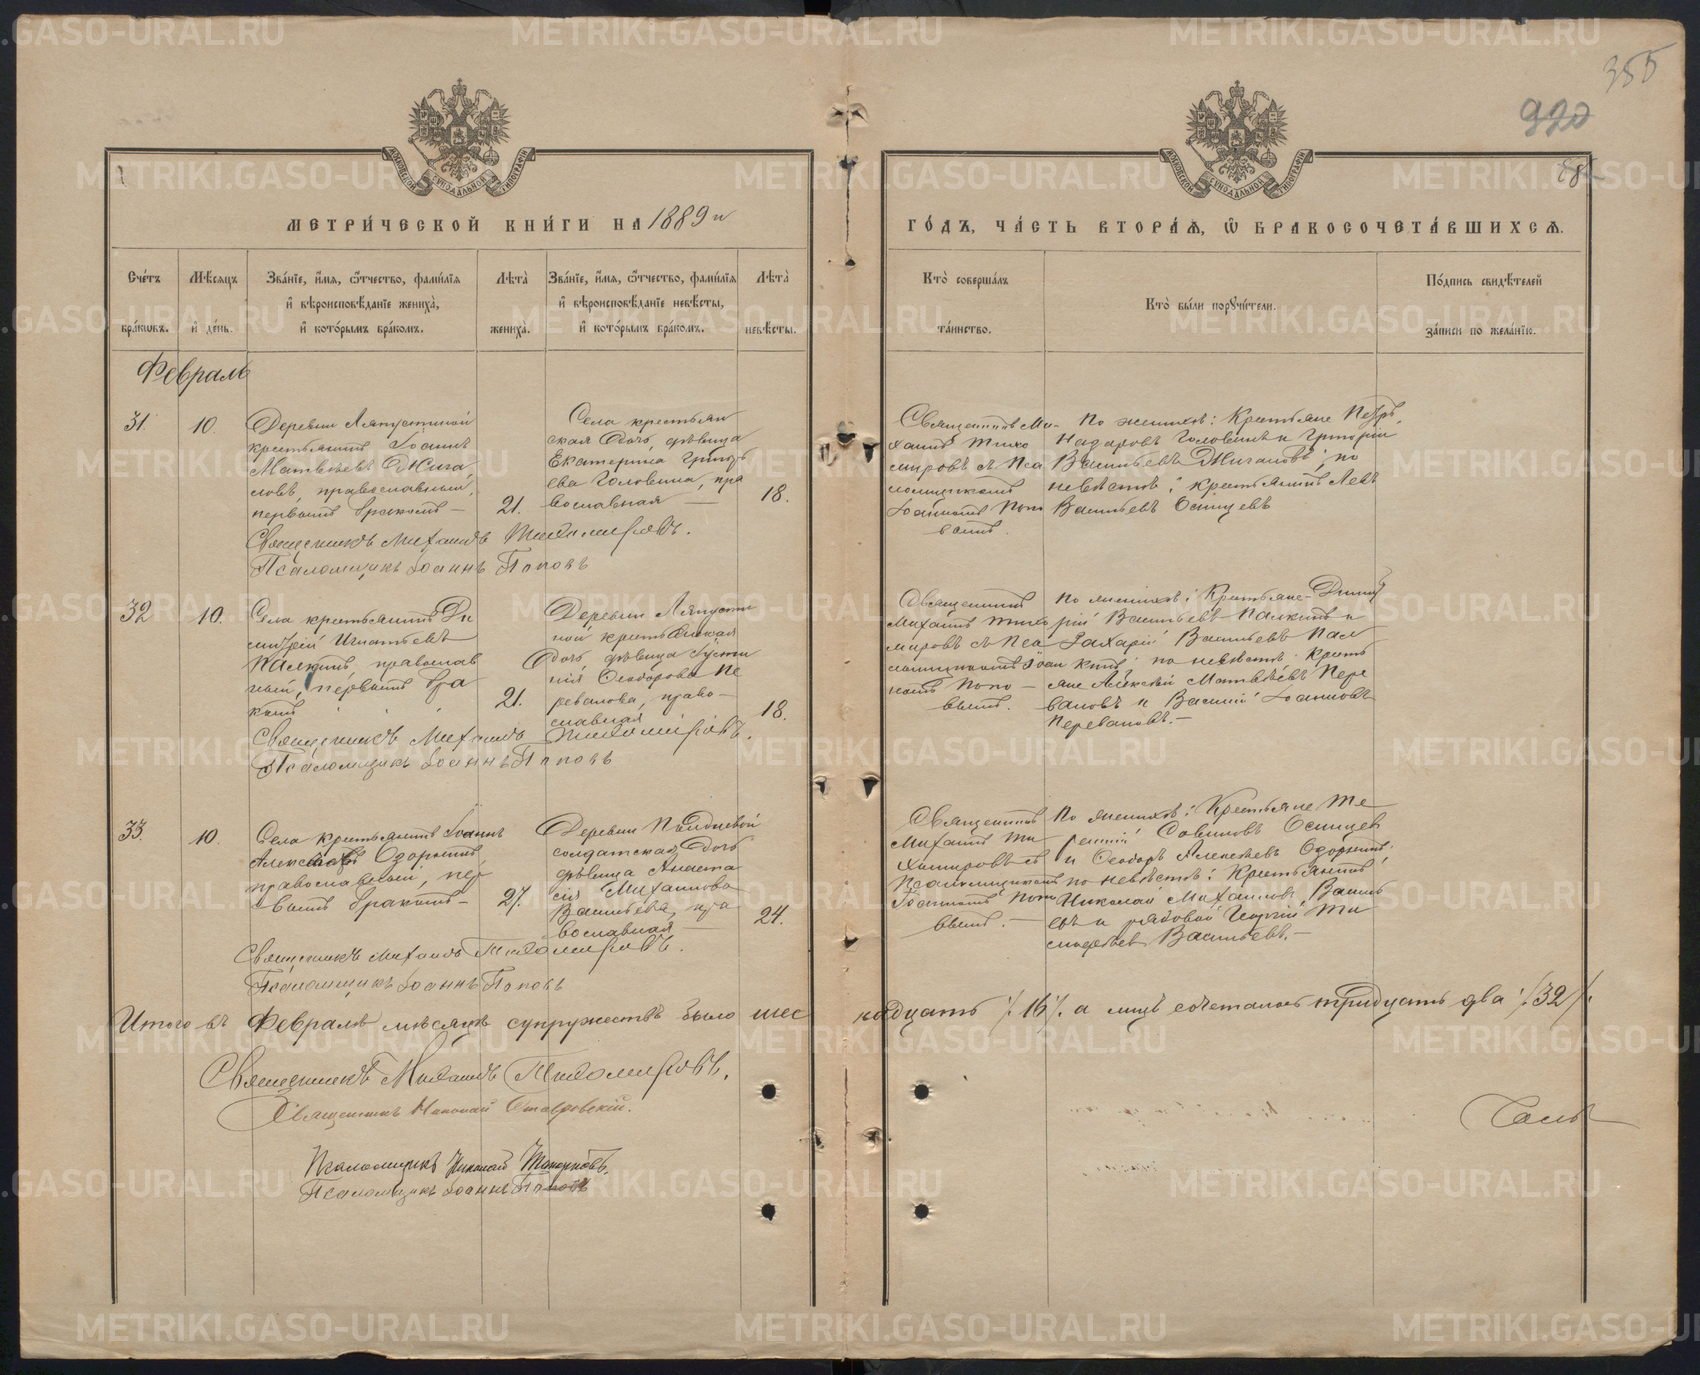 355
920
МЕТРИ́ЧЕСКОЙ КНИ́ГИ НА 1889 й
ГО́ДЪ, ЧА́СТЬ ВТОРА́Я, Ѽ БРАКОСОЧЕТА́ВШИХСЯ.
Сче́тъ бра́кωвъ.
Мѣ́сяцъ и҆ де́нь.
Зва́нїе, и҆́мя, ѻ҆́тчество, фами́лїя и҆ вѣроисповѣ́данїе жениха̀, и҆ кото́рымъ бра́комъ.
Лѣта̀ жениха̀.
Зва́нїе, и҆́мя, ѻ҆́тчество, фами́лїя и҆ вѣроисповѣ́данїе невѣ́сты, и҆ кото́рымъ бра́комъ.
Лѣта̀ невѣ́сты.
Кто̀ соверша́лъ та́инство.
Кто̀ бы́ли порꙋчи́тели.
По́дпись свидѣ́телей за́писи по жела́нїю.
Февраль
31.
10.
Деревни Ляпустиной
крестьянинъ Іоаннъ
Матвѣевъ Джига
ловъ, православный,
первымъ бракомъ –
21.
Села крестьян
ская дочь, дѣвица
Екатерина Григорь
ева Головина, пра
вославная –
18.
Священникъ Ми-
хаилъ Тихо
мировъ съ Пса
ломщикомъ
Іоанномъ Попо
вымъ.
По женихѣ: Крестьяне Петръ
Назаровъ Головинъ и Григорій
Васильевъ Джигаловъ; по
невѣстѣ: крестьянинъ Левъ
Васильевъ Осинцевъ
Священникъ Михаилъ Тихомировъ.
Псаломщикъ Іоаннъ Поповъ
32
10.
Села крестьянинъ Ди
митрій Игнатьевъ
Палкинъ, православ
ный, первымъ бра
комъ
21.
Деревни Ляпусти
ной крестьянская
дочь, дѣвица Іусти
нія Ѳеодорова Пе
ревалова, право-
славная
18.
Священникъ
Михаилъ Тихо
мировъ съ Пса
ломщикомъ Іоан
номъ Попо –
вымъ.
По женихѣ: Крестьяне Димит
рій Васильевъ Палкинъ и
Захарій Васильевъ Пал
кинъ; по невѣстѣ: кресть
яне Алексѣй Матвѣевъ Пере
валовъ и Василій Іоанновъ
Переваловъ. –
Священникъ Михаилъ Тихомировъ.
Псаломщикъ Іоаннъ Поповъ
33.
10.
Села крестьянинъ Іоаннъ
Алексѣевъ Одорытинъ,
православный, пер
вымъ бракомъ –
27.
Деревни
солдатская дочь
дѣвица Анаста
сія Михаилова
Васильева, пра
вославная –
24.
Священникъ
Михаилъ Ти
хомировъ съ
Псаломщикомъ
Іоанномъ Попо
вымъ. –
По женихѣ: Крестьяне Те
рентій Савиновъ Осинцев
и Ѳеодоръ Алексѣевъ
по невѣстѣ: Крестьянинъ
Николай Михаиловъ Василь
евъ и рядовой Георгій Ти
моѳеевъ Васильевъ. –
Священникъ Михаилъ Тихомировъ.
Псаломщикъ Іоаннъ Поповъ
Итого въ Февралѣ мѣсяцѣ супружествъ было шес
надцать ⁒ 16 ⁒. а лицъ сочеталось тридцать два ⁒ 32 ⁒.
Священникъ Михаилъ Тихомировъ.
Священникъ Николай Ставровскій.
Псаломщикъ Николай
Псаломщикъ Іоаннъ Поповъ
METRIKI.GASO-URAL.RU